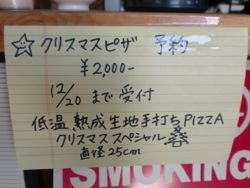 ☆クリスマスピザ 予約
¥2,000-
12/20 まで 受付
低温 熟成生地手打ちPIZZA
クリスマススペシャル
直径25cm
SMOKING